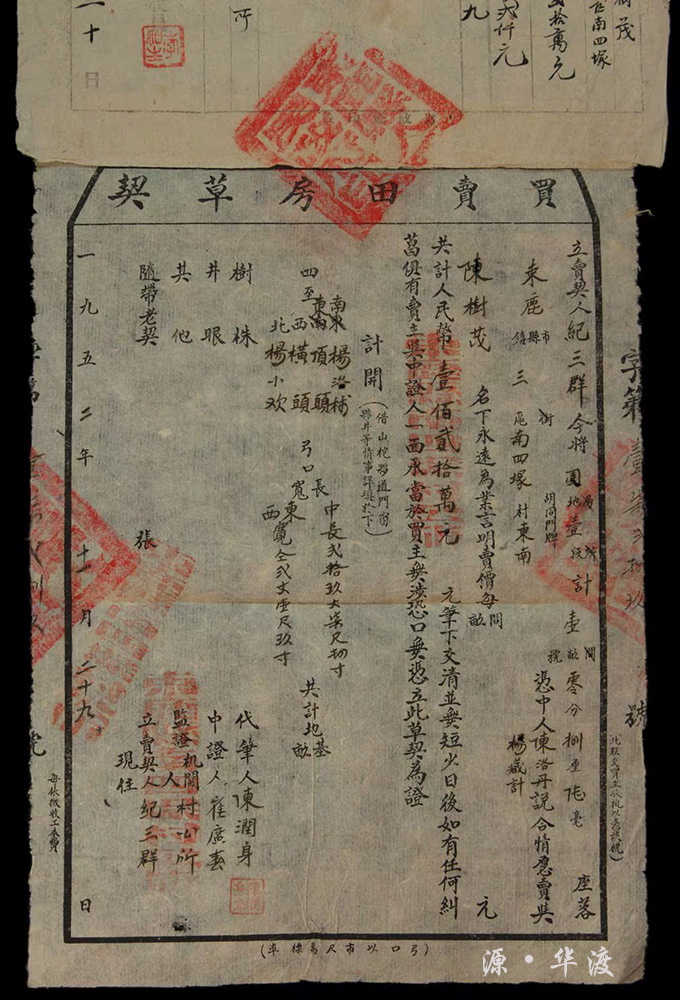 樹茂
南四塚
拾萬元
仟元
九
二十日
買賣田房草契
立賣契人紀三群今將 地壹段計壹畝零分捌厘 毫 座落
束鹿縣市鎮三區南四塚村東南
街
胡同門牌
憑中人陳洛丹說合情愿賣與
楊藏計
陳樹茂 名下永遠為業言明賣價每間畝 元
共計人民幣壹佰貳拾萬元 元筆下交清並無短少日後如有任何糾
葛俱有賣主與中證人一面承當於買主無涉恐口無憑立此草契為證
計開
四至
南東楊洛
東南頂頭
西橫頭
北楊小欢
弓口
長
寬
中長弍拾玖丈柒尺 寸
東
西寬仝弍丈壹尺玖寸
共計地基畝
樹株
井眼
其他
隨帶老契 張
代筆人陳潤身
中證人崔廣春
監證機関人村公所
立賣契人紀三群
現住
一九五二年十一月二十九日
字第壹 號
每張徵收工本費
(弓口以市尺為標準)
源·华渡